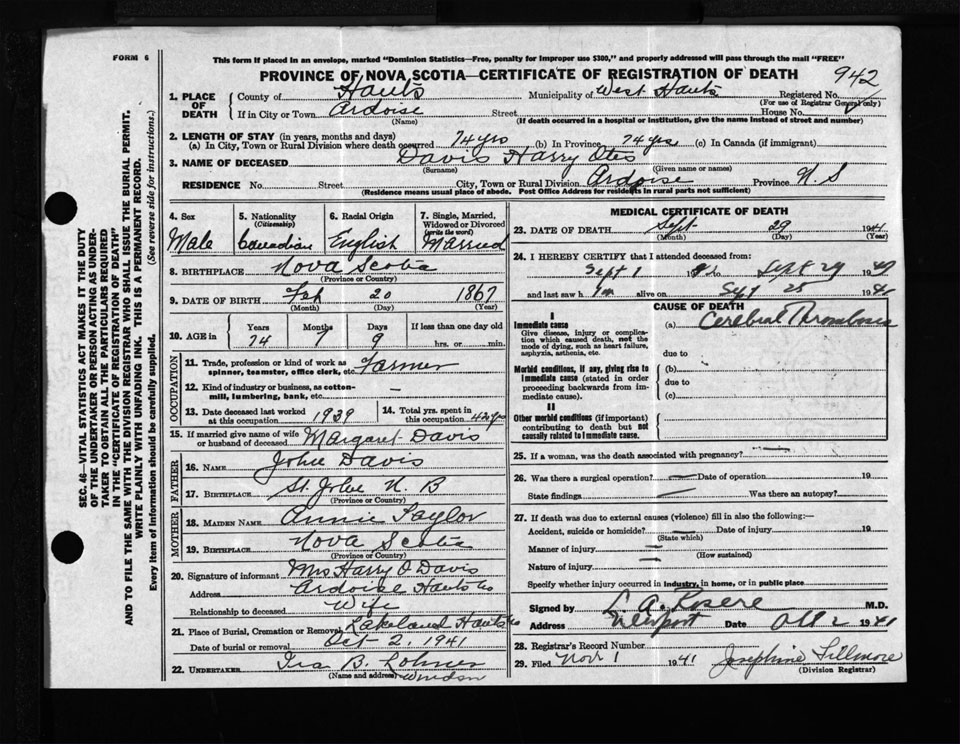 FORM 6
This form if placed in an envelope, marked "Dominion Statistics—Free, penalty for improper use $300," and properly addressed will pass through the mail "FREE"
PROVINCE OF NOVA SCOTIA—CERTIFICATE OF REGISTRATION OF DEATH 942
1. PLACE OF DEATH
County of Hants Municipality of West Hants Registered No.
(For use of Registrar General only)
If in City or Town Ardoise Street House No.
(Name) (If death occurred in a hospital or institution, give the name instead of street and number)
2. LENGTH OF STAY (in years, months and days)
(a) In City, Town or Rural Division where death occurred 74 yrs (b) In Province 74 yrs (c) In Canada (if immigrant)
3. NAME OF DECEASED Davis Harry Otis
(Surname) (Given name or names)
RESIDENCE No. Street City, Town or Rural Division Ardoise Province N. S
(Residence means usual place of abode. Post Office Address for residents in rural parts not sufficient)
4. Sex
Male
5. Nationality
(Citizenship)
Canadian
6. Racial Origin
English
7. Single, Married, Widowed or Divorced
(write the word)
Married
8. BIRTHPLACE Nova Scotia
(Province or Country)
9. DATE OF BIRTH Feb 20 1867
(Month) (Day) (Year)
10. AGE in Years Months Days If less than one day old
74 7 9 hrs. or min.
OCCUPATION
11. Trade, profession or kind of work as spinner, teamster, office clerk, etc. Farmer
12. Kind of industry or business, as cotton-mill, lumbering, bank, etc. —
13. Date deceased last worked at this occupation 1939
14. Total yrs. spent in this occupation 42 yrs
15. If married give name of wife or husband of deceased Margaret Davis
FATHER
16. NAME John Davis
17. BIRTHPLACE St. John N. B
(Province or Country)
MOTHER
18. MAIDEN NAME Annie Taylor
19. BIRTHPLACE Nova Scotia
(Province or Country)
20. Signature of informant Mrs Harry O Davis
Address Ardoise Hants Co
Relationship to deceased Wife
21. Place of Burial, Cremation or Removal Lakeland Hants Co
Date of burial or removal Oct 2, 1941
22. UNDERTAKER Ira B.
(Name and address) Windsor
MEDICAL CERTIFICATE OF DEATH
23. DATE OF DEATH Sept 29 1941
(Month) (Day) (Year)
24. I HEREBY CERTIFY that I attended deceased from:
Sept 1 19 to Sept 29 19
and last saw him alive on Sept 28 1941
CAUSE OF DEATH
I
Immediate cause
Give disease, injury or complication which caused death, not the mode of dying, such as heart failure, asphyxia, asthenia, etc.
(a) Cerebral Thrombosis
due to
Morbid conditions, if any, giving rise to immediate cause (stated in order proceeding backwards from immediate cause).
(b)
due to
(c)
II
Other morbid conditions (if important) contributing to death but not causally related to immediate cause.
25. If a woman, was the death associated with pregnancy? —
26. Was there a surgical operation? — Date of operation 19
State findings — Was there an autopsy?
27. If death was due to external causes (violence) fill in also the following:—
Accident, suicide or homicide? — Date of injury 19
(State which)
Manner of injury —
(How sustained)
Nature of injury —
Specify whether injury occurred in industry, in home, or in public place
Signed by L. A. M.D.
Address Newport Date Oct 2 1941
28. Registrar's Record Number
29. Filed Nov. 1 1941 Josephine Fillmore
(Division Registrar)
SEC. 46—VITAL STATISTICS ACT MAKES IT THE DUTY
OF THE UNDERTAKER OR PERSON ACTING AS UNDER-
TAKER TO OBTAIN ALL THE PARTICULARS REQUIRED
IN THE "CERTIFICATE OF REGISTRATION OF DEATH"
AND TO FILE THE SAME WITH THE DIVISION REGISTRAR WHO SHALL ISSUE THE BURIAL PERMIT.
WRITE PLAINLY WITH UNFADING INK. THIS IS A PERMANENT RECORD.
Every item of information should be carefully supplied. (See reverse side for instructions.)